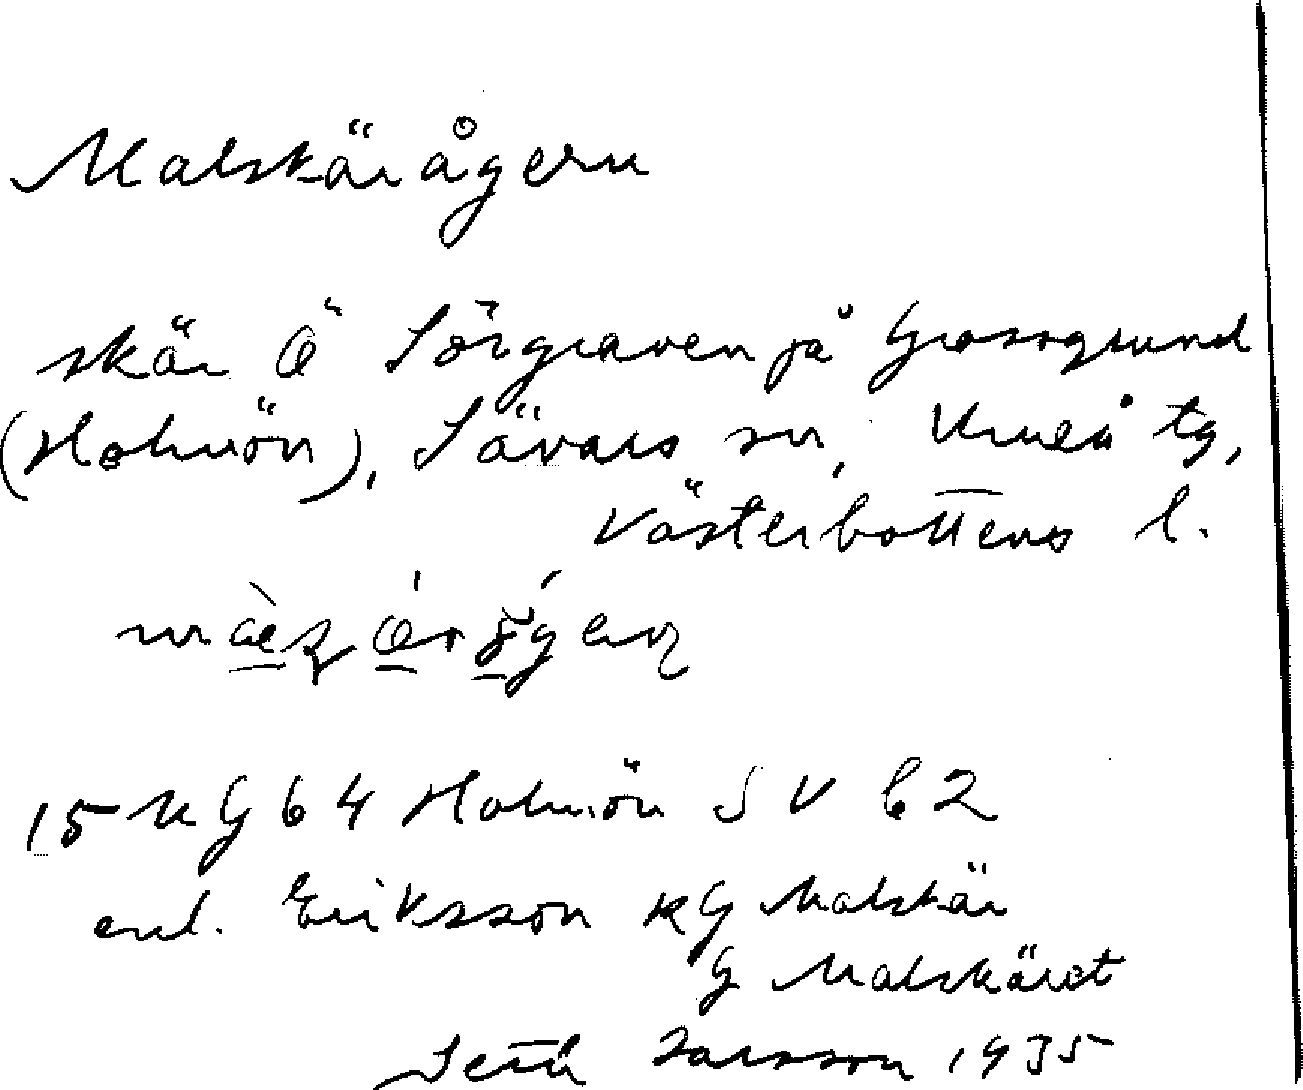 Malskärågern
skär Ö Sörgraven på Grossgrund
(Holmön), Sävars sn, Umeå tg,
Västerbottens l.
15 KG 64 Holmön SV b2
enl. Eriksson KG Malskär
G Malskäret
Seth Larsson 1935